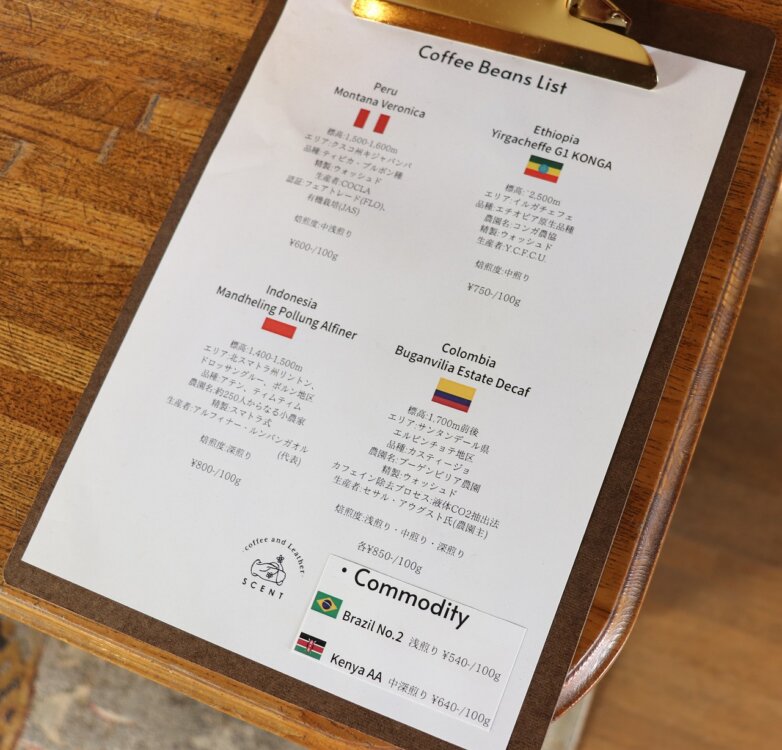 Coffee Beans List
Peru
Montana Veronica
標高:1,500-1,600m
エリア:クスコ州キジャバンバ
品種:ティピカ・ブルボン種
精製:ウォッシュド
生産者:COCLA
認証:フェアトレード(FLO)、
有機栽培(JAS)
焙煎度:中浅煎り
¥600-/100g
Ethiopia
Yirgacheffe G1 KONGA
標高:~2,500m
エリア:イルガチェフェ
品種:エチオピア原生品種
農園名:コンガ農協
精製:ウォッシュド
生産者:Y.C.F.C.U.
焙煎度:中煎り
¥750-/100g
Indonesia
Mandheling Pollung Alfiner
標高:1,400-1,500m
エリア:北スマトラ州リントン、
ドロッサングルー、ポルン地区
品種:アテン、ティムティム
農園名:約250人からなる小農家
精製:スマトラ式
生産者:アルフィナー・ルンバンガオル
(代表)
焙煎度:深煎り
¥800-/100g
Colombia
Buganvilia Estate Decaf
標高:1,700m前後
エリア:サンタンデール県
エルピンチョテ地区
品種:カスティージョ
農園名:ブーゲンビリア農園
精製:ウォッシュド
カフェイン除去プロセス:液体CO2抽出法
生産者:セサル・アウグスト氏(農園主)
焙煎度:浅煎り・中煎り・深煎り
各¥850-/100g
coffee and Leather
SCENT
・Commodity
Brazil No.2 浅煎り ¥540-/100g
Kenya AA 中深煎り ¥640-/100g